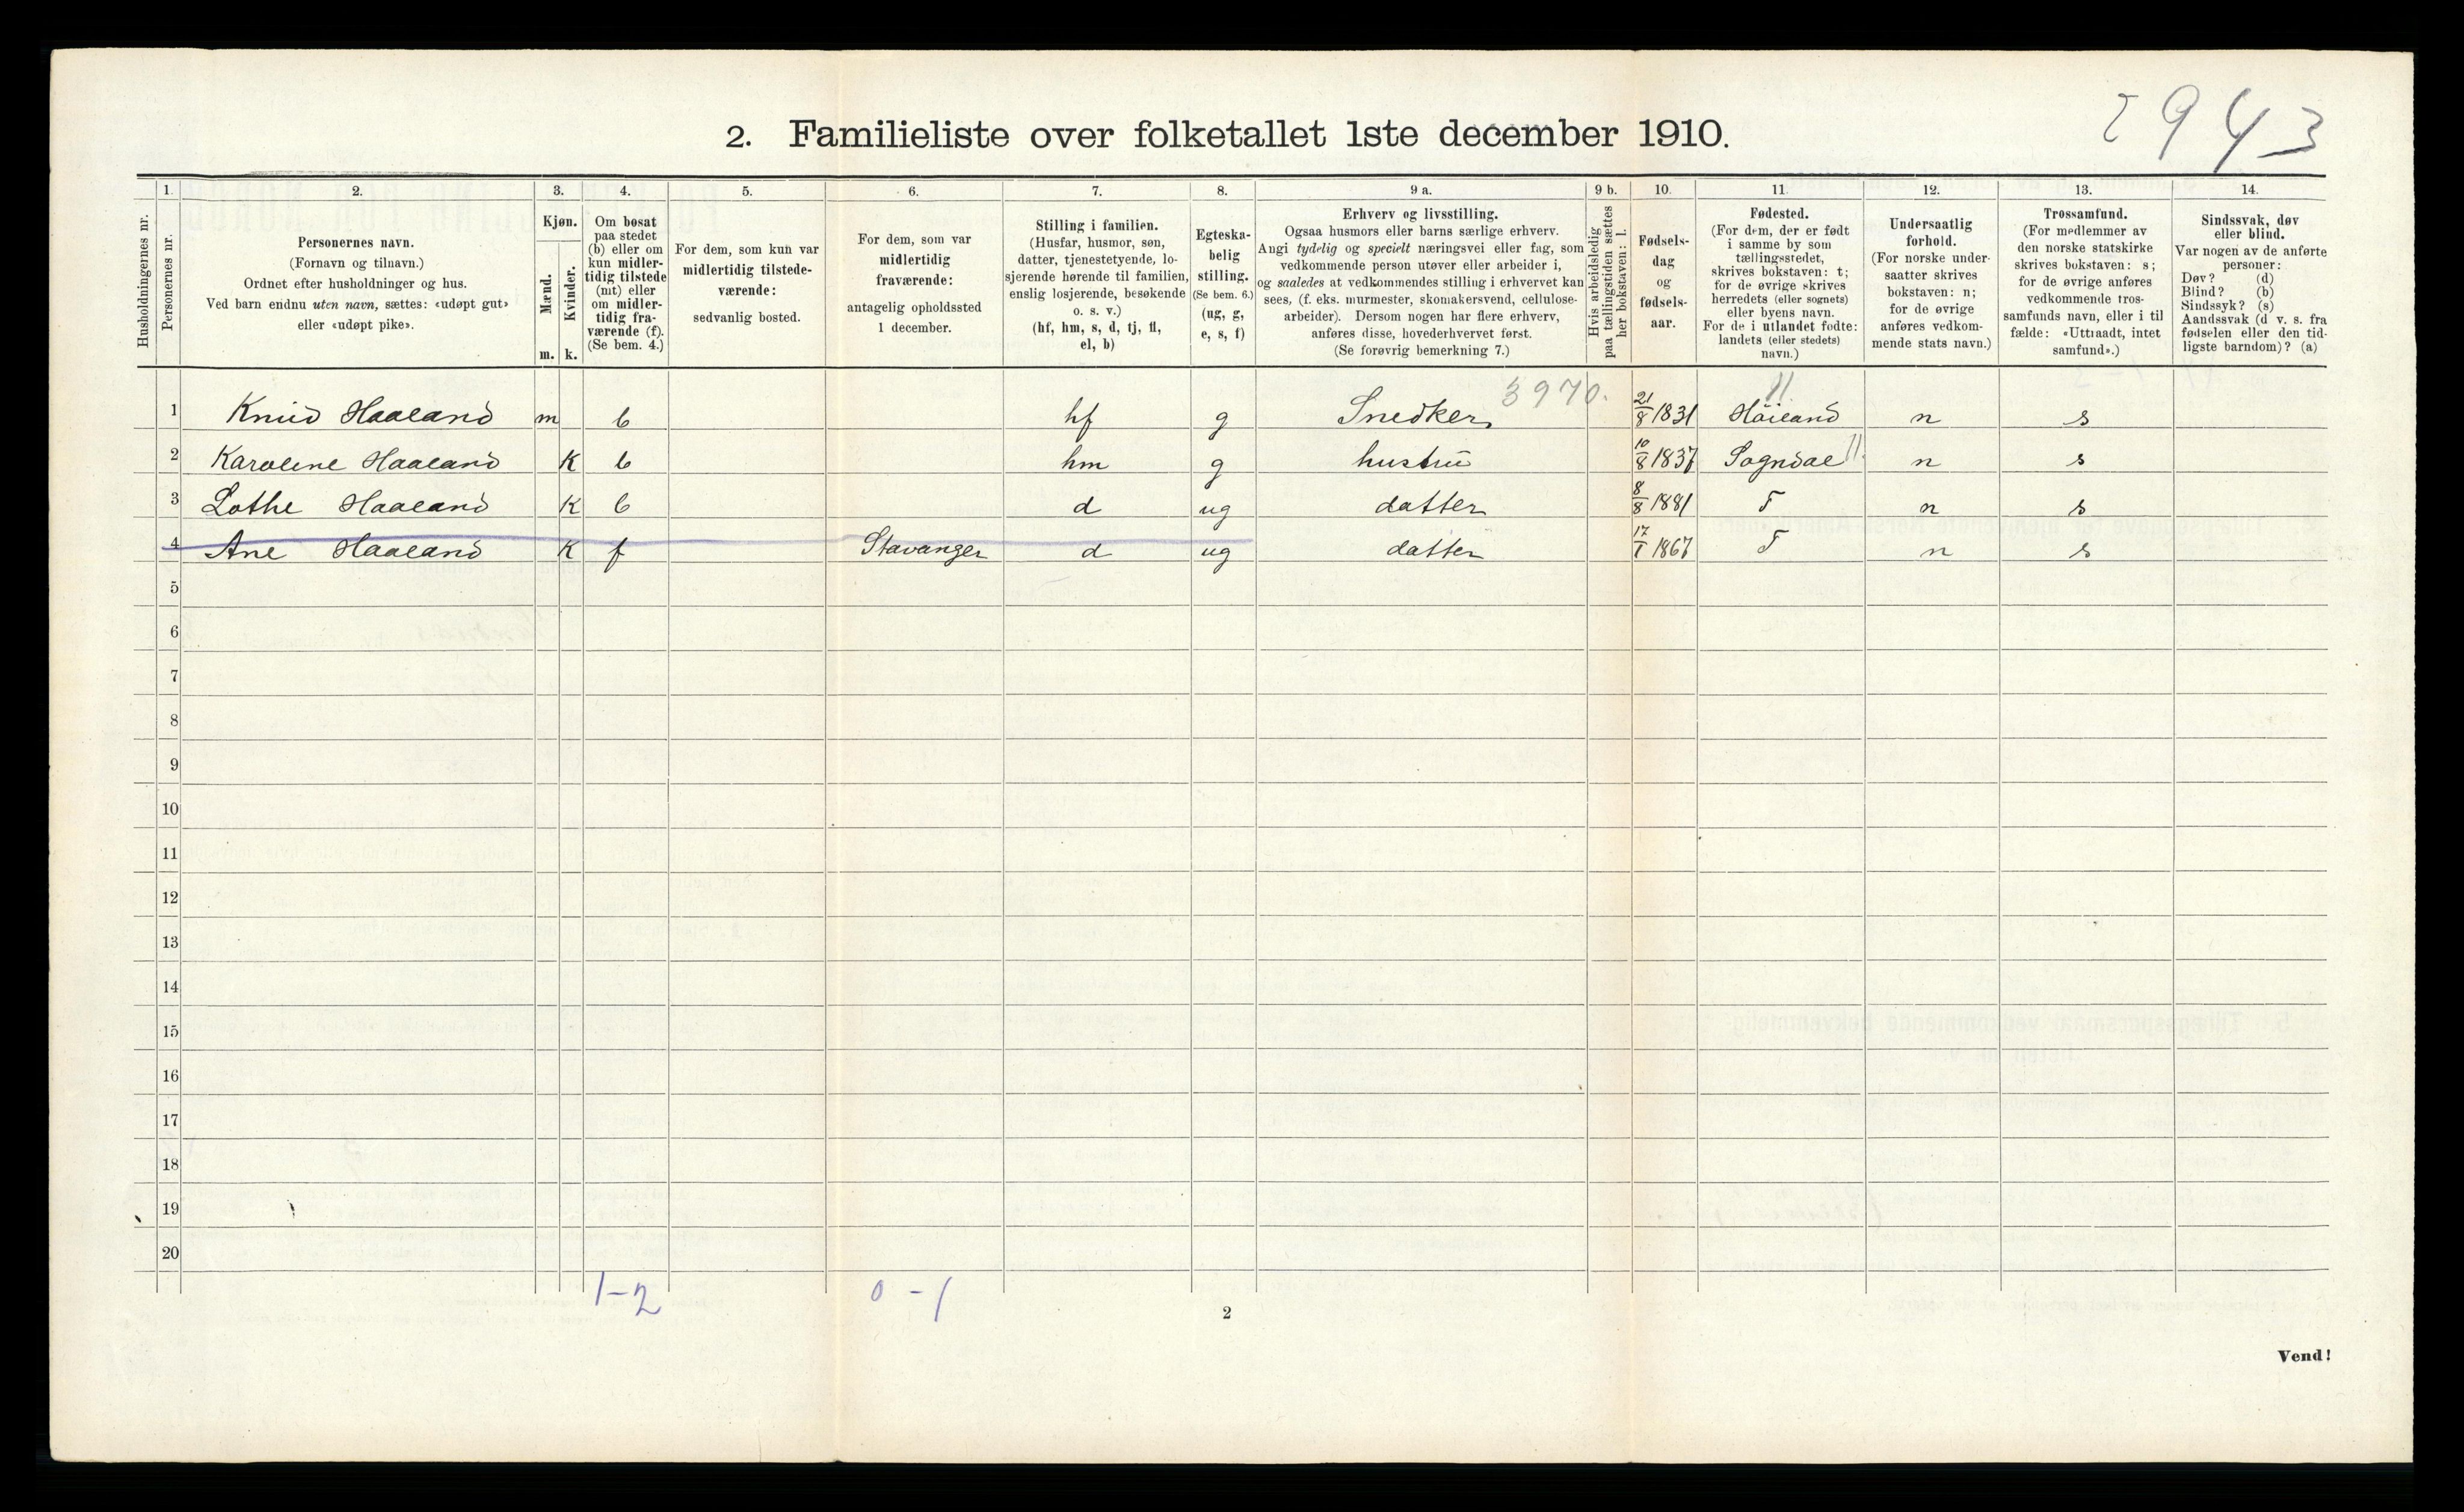 2943
2. Familieliste over folketallet 1ste december 1910.
1. 2. 3. 4. 5. 6. 7. 8. 9 a. 9 b. 10. 11. 12. 13. 14.
Husholdningernes nr.
Personernes nr.
Personernes navn.
(Fornavn og tilnavn.)
Ordnet efter husholdninger og hus.
Ved barn endnu uten navn, sættes: «udøpt gut»
eller «udøpt pike».
Kjøn.
Mænd.
Kvinder.
m. k.
Om bosat
paa stedet
(b) eller om
kun midler-
tidig tilstede
(mt) eller
om midler-
tidig fra-
værende (f).
(Se bem. 4.)
For dem, som kun var
midlertidig tilstede-
værende:
sedvanlig bosted.
For dem, som var
midlertidig
fraværende:
antagelig opholdssted
1 december.
Stilling i familien.
(Husfar, husmor, søn,
datter, tjenestetyende, lo-
sjerende hørende til familien,
enslig losjerende, besøkende
o. s. v.)
(hf, hm, s, d, tj, fl,
el, b)
Egteska-
belig
stilling.
(Se bem. 6.)
(ug, g,
e, s, f)
Erhverv og livsstilling.
Ogsaa husmors eller barns særlige erhverv.
Angi tydelig og specielt næringsvei eller fag, som
vedkommende person utøver eller arbeider i,
og saaledes at vedkommendes stilling i erhvervet kan
sees, (f. eks. murmester, skomakersvend, cellulose-
arbeider). Dersom nogen har flere erhverv,
anføres disse, hovederhvervet først.
(Se forøvrig bemerkning 7.)
Hvis arbeidsledig
paa tællingstiden sættes
her bokstaven: l.
Fødsels-
dag
og
fødsels-
aar.
Fødested.
(For dem, der er født
i samme by som
tællingsstedet,
skrives bokstaven: t;
for de øvrige skrives
herredets (eller sognets)
eller byens navn.
For de i utlandet fødte:
landets (eller stedets)
navn.)
Undersaatlig
forhold.
(For norske under-
saatter skrives
bokstaven: n;
for de øvrige
anføres vedkom-
mende stats navn.)
Trossamfund.
(For medlemmer av
den norske statskirke
skrives bokstaven: s;
for de øvrige anføres
vedkommende tros-
samfunds navn, eller i til
fælde: «Uttraadt, intet
samfund».)
Sindssvak, døv
eller blind.
Var nogen av de anførte
personer:
Døv? (d)
Blind? (b)
Sindssyk? (s)
Aandssvak (d. v. s. fra
fødselen eller den tid-
ligste barndom)? (a)
3970. 11.
1 Knud Haaland m b hf g Snedker 21/8 1831 Höiland n s
2 Karoline Haaland K b hm g hustru 10/8 1837 Sogndal 11. n s
3 Lothe Haaland K b d ug datter 8/8 1881 T n s
4 Ane Haaland K f Stavanger d ug datter 17/1 1867 T n s
5
6
7
8
9
10
11
12
13
14
15
16
17
18
19
20
1-2 0-1
2
Vend!